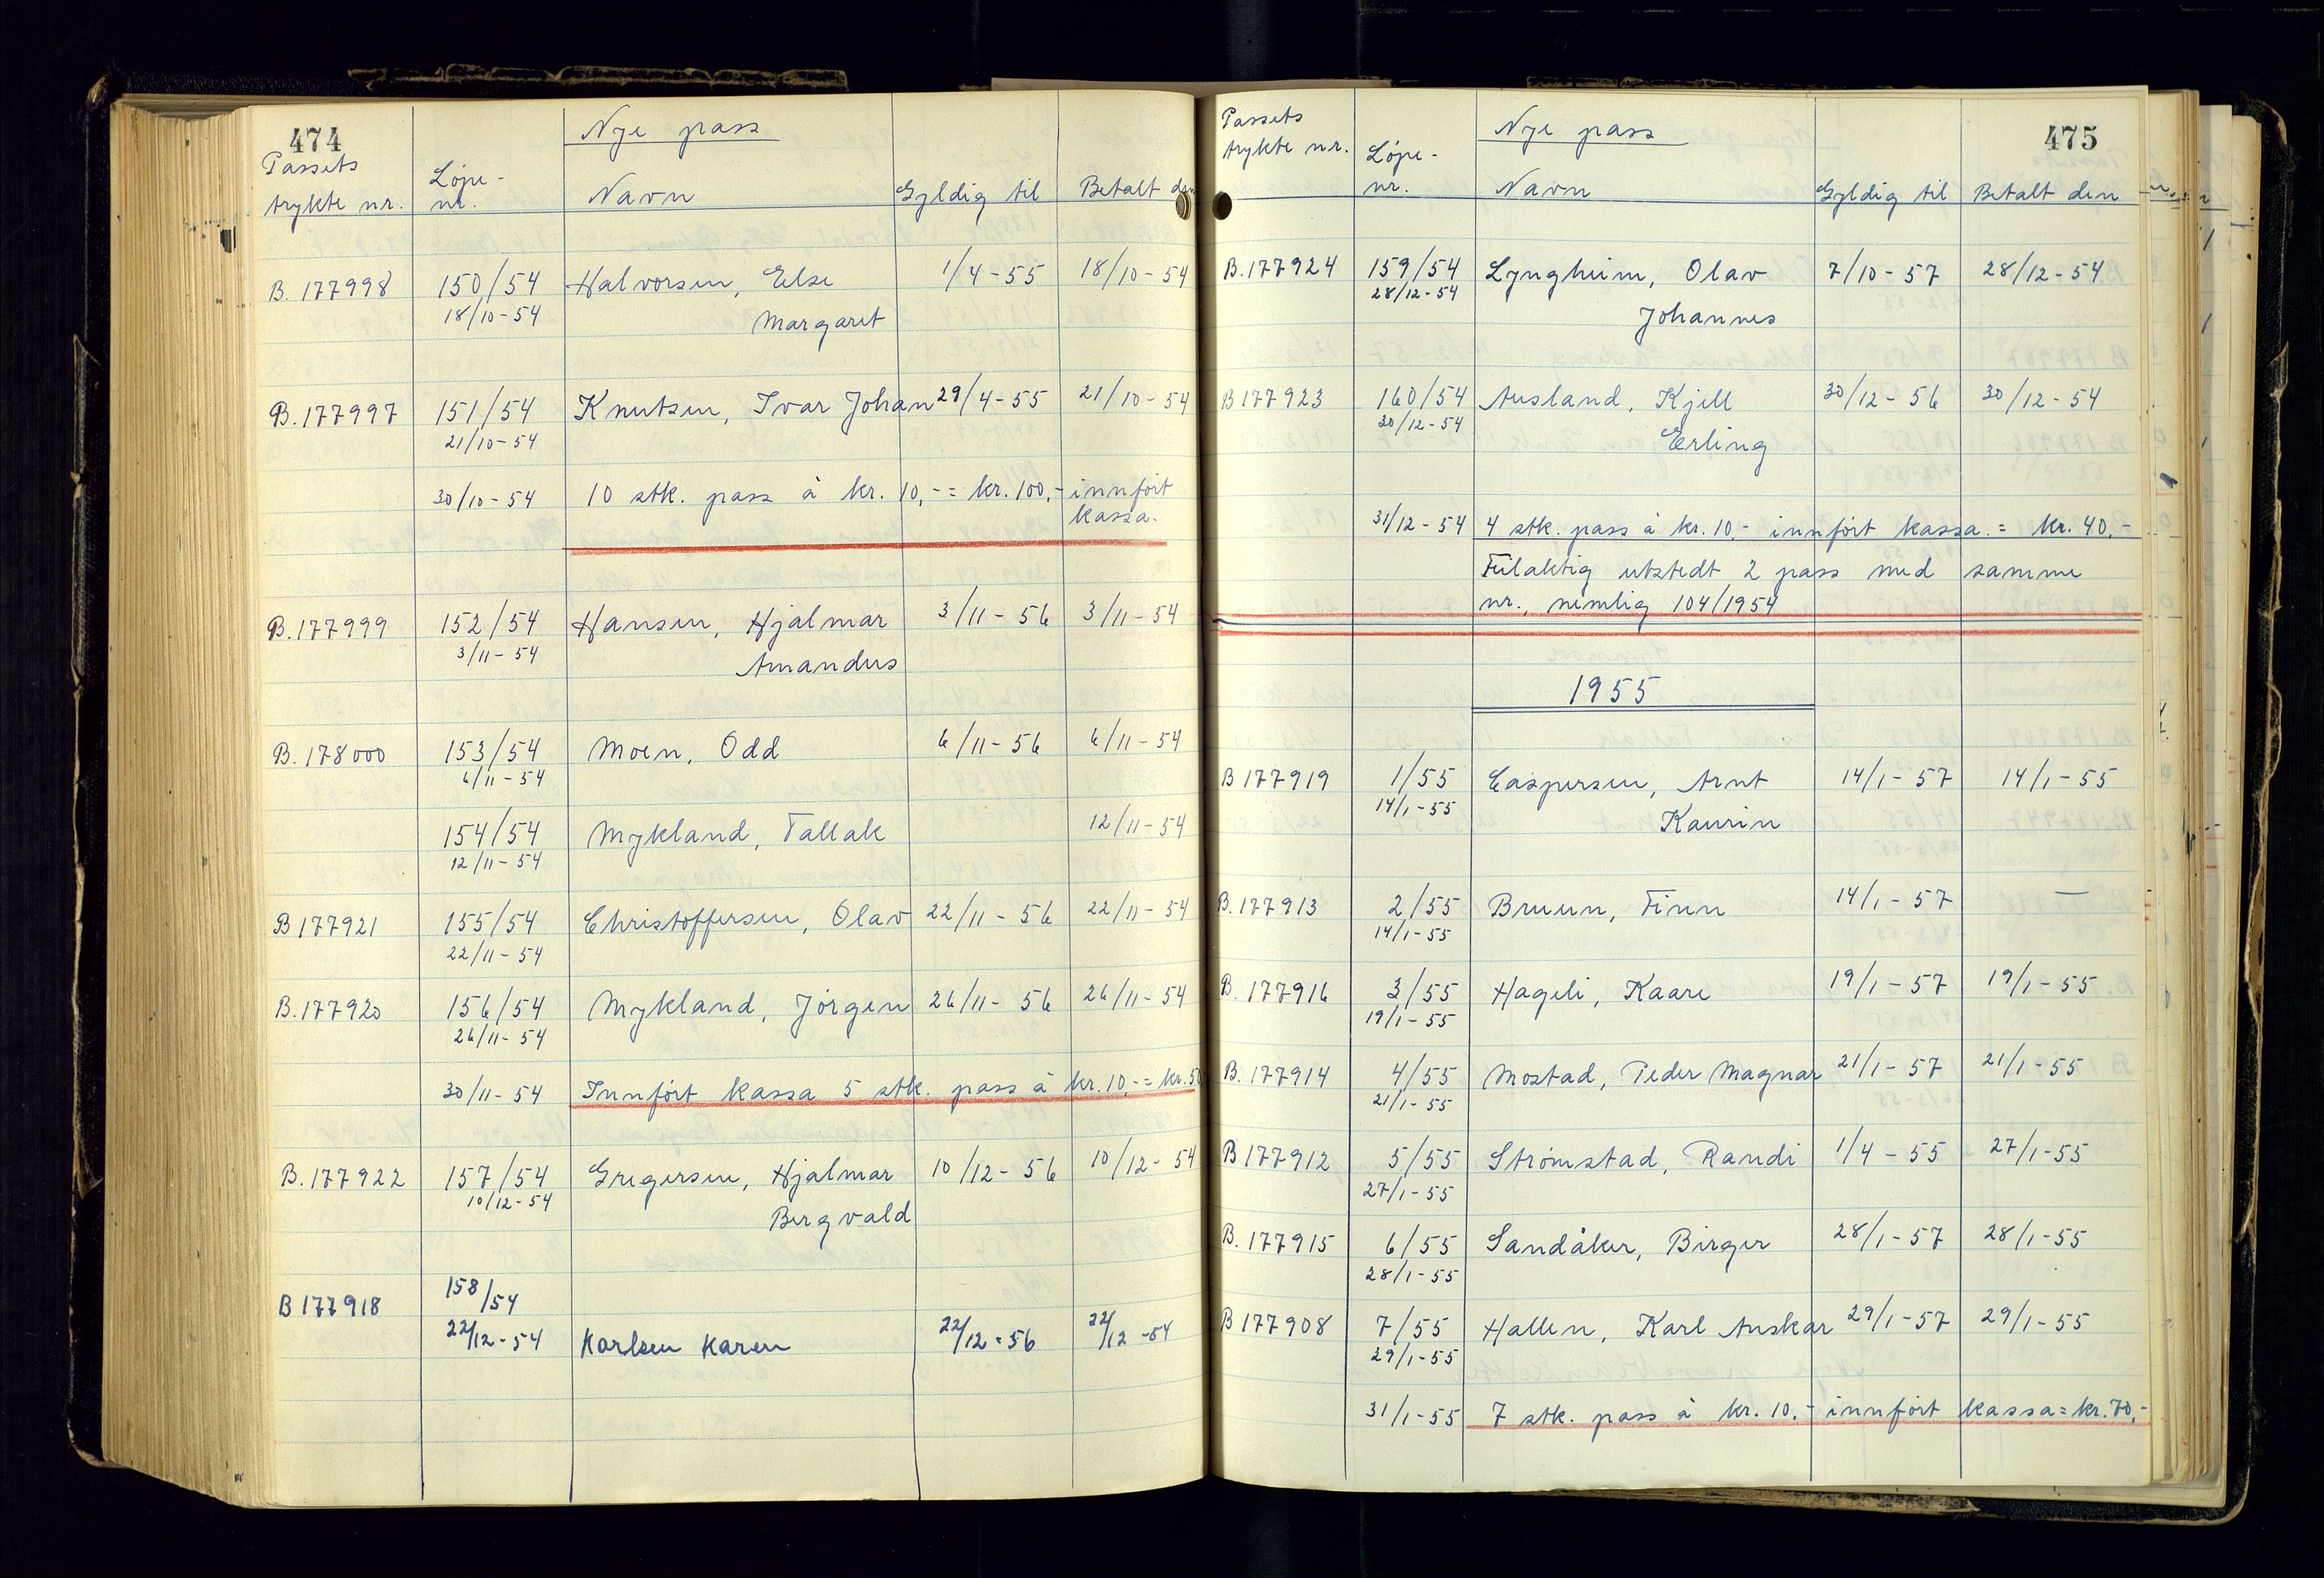 474
Nye pass
Passets trykte nr. Løpe-nr. Navn Gyldig til Betalt den
B. 177998 150/54 Halvorsen, Else 1/4-55 18/10-54
18/10-54 Margaret
B. 177997 151/54 Knutsen, Ivar Johan 29/4-55 21/10-54
21/10-54
30/10-54 10 stk. pass á kr. 10,- = kr. 100,- innført
kassa.
B. 177999 152/54 Hansen, Hjalmar 3/11-56 3/11-54
3/11-54 Amandus
B. 178000 153/54 Moen, Odd 6/11-56 6/11-54
6/11-54
154/54 Mykland, Tallak 12/11-54
12/11-54
B 177921 155/54 Christoffersen, Olav 22/11-56 22/11-54
22/11-54
B. 177920 156/54 Mykland, Jørgen 26/11-56 26/11-54
26/11-54
30/11-54 Innført kassa 5 stk. pass á kr. 10,- = kr. 50
B. 177922 157/54 Gregersen, Hjalmar 10/12-56 10/12-54
10/12-54 Bergvald
B 177918 158/54
22/12-54 Karlsen Karen 22/12-56 22/12-54
475
Nye pass
Passets trykte nr. Løpe-nr. Navn Gyldig til Betalt den
B. 177924 159/54 Lyngheim, Olav 7/10-57 28/12-54
28/12-54 Johannes
B 177923 160/54 Ausland, Kjell 30/12-56 30/12-54
30/12-54 Erling
31/12-54 4 stk. pass á kr. 10,- innført kassa. = kr. 40,-
Feilaktig utstedt 2 pass med samme
nr., nemlig 104/1954
1955
B 177919 1/55 Caspersen, Arnt 14/1-57 14/1-55
14/1-55 Kaurin
B. 177913 2/55 Bruun, Finn 14/1-57 —
14/1-55
B. 177916 3/55 Hageli, Kaare 19/1-57 19/1-55
19/1-55
B. 177914 4/55 Mostad, Peder Magnar 21/1-57 21/1-55
21/1-55
B 177912 5/55 Strømstad, Randi 1/4-55 27/1-55
27/1-55
B. 177915 6/55 Sandåker, Birger 28/1-57 28/1-55
28/1-55
B 177908 7/55 Hallen, Karl Anskar 29/1-57 29/1-55
29/1-55
31/1-55 7 stk. pass á kr. 10,- innført kassa = kr. 70,-